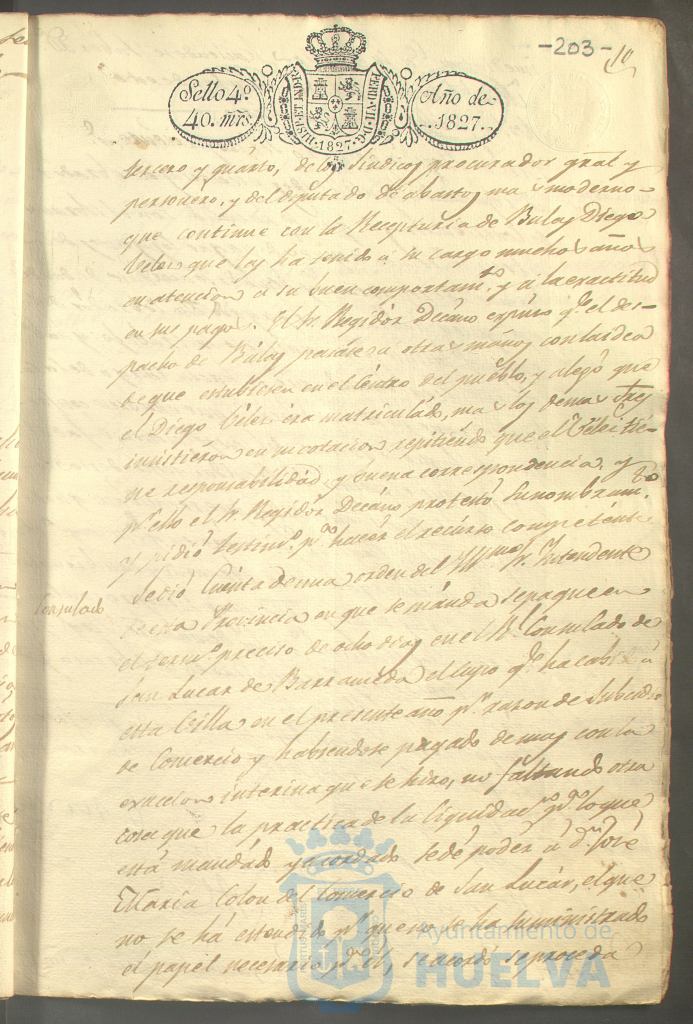 -203-
10
Sello 4º
40. mrs
HISP. ET IND. R. FERD. VII. D. G.
1827
Año de
1827.
tercero y quarto, de los Sindicos procurador gral y
personero, y del diputado de abastos mas moderno
que continue con la Recepturia de Bulas Diego
Velez que las ha tenido a su cargo muchos años
en atencion a su buen comportamto. y a la exactitud
en sus pagos. El Sr. Regidor Decano expuso qe. el des-
pacho de Bulas pasáse a otras manos con la idea
de que estubiesen en el Centro del pueblo, y alegó que
el Diego Velez era matriculado, mas los demas Sres
insistieron en su votacion repitiendo que el Velez tie-
ne responsabilidad y buena correspondencia, y
pr. ello el Sr. Regidor Decano protestó su nombramto.
y pidió testimo. pa. hacer el recurso competente.
Consulado
Se dió Cuenta de una orden del Sr. Intendente
de esta Provincia en que se manda se pague en
el termo. preciso de ocho dias en el Rl. Consulado de
San Lucar de Barrameda el cupo qe. ha cabido a
esta Villa en el presente año pr. razon de Subsidio
de Comercio y habiendose pagado de mas con la
exaccion interina que se hizo, no faltando otra
cosa que la practica de la liquidacn. pa. lo que
está mandado y acordado se dé poder á Dn. José
Maria Colon del Comercio de San Lucar, el que
no se há estendido pr. que no se ha suministrado
el papel necesario pa. el, se acordó se proceda
Ayuntamiento de
HUELVA